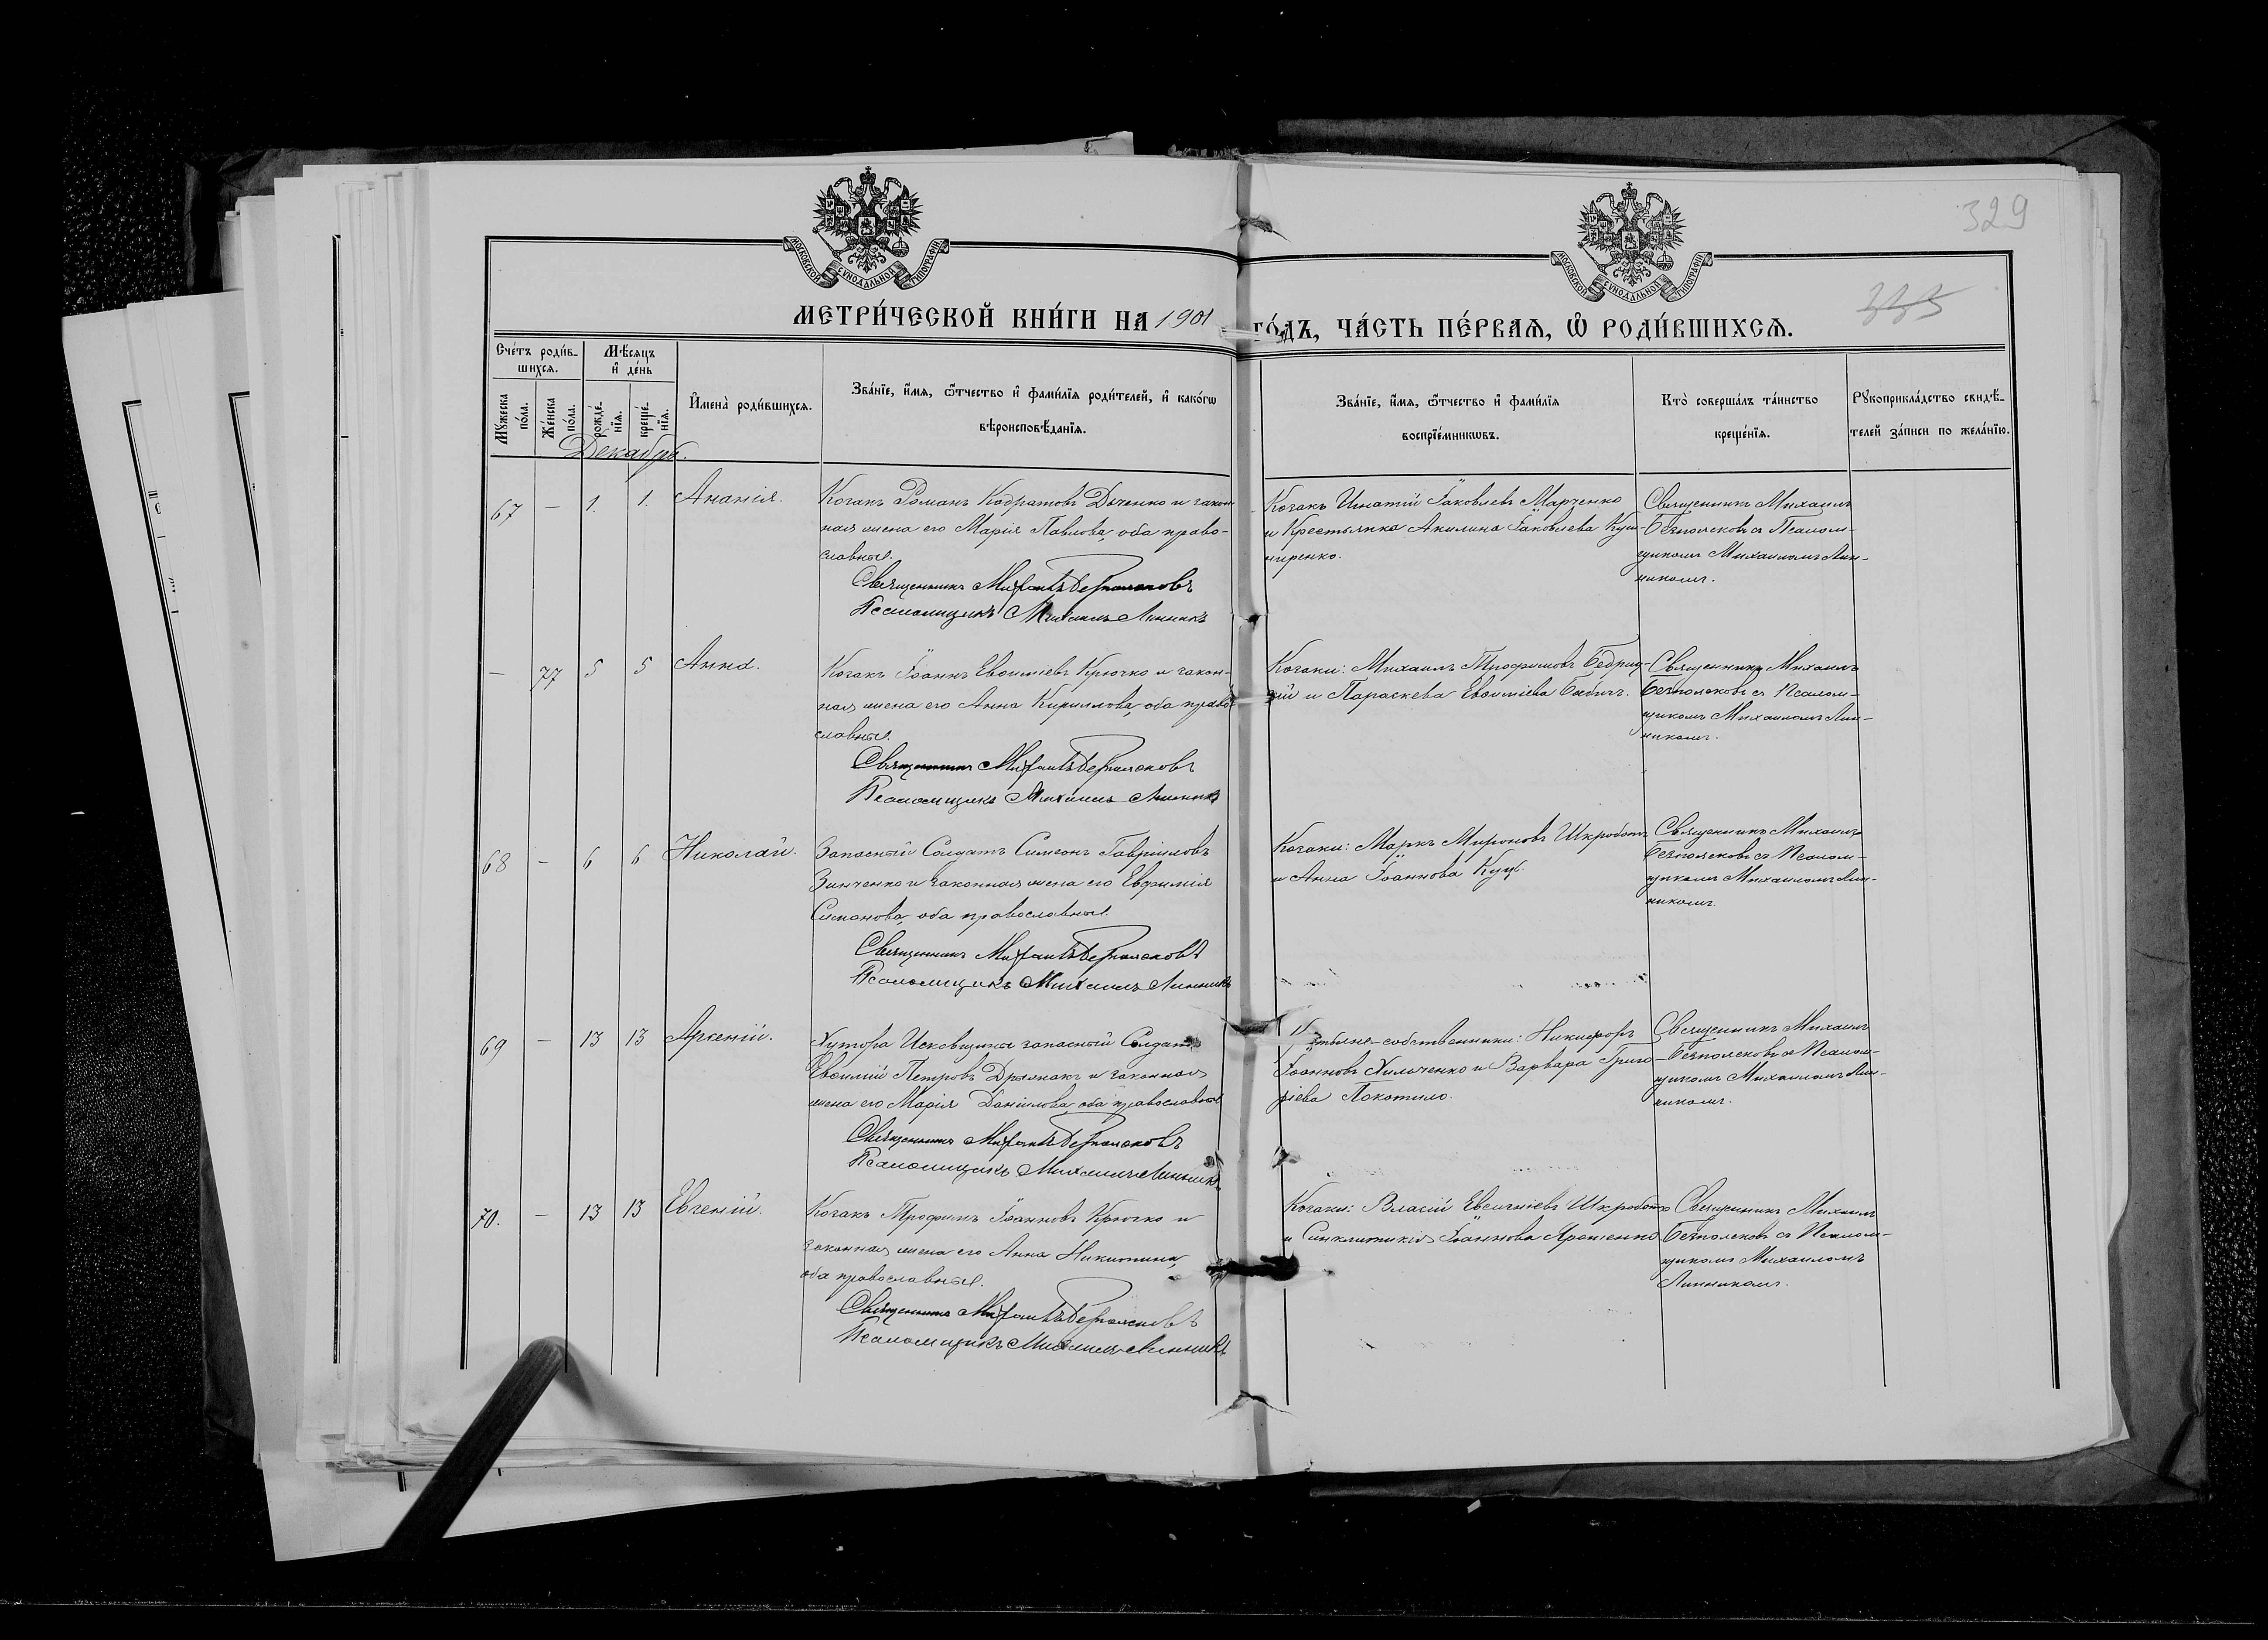 329
335
МОСКОВСКОЙ СѴНОДАЛЬНОЙ ТИПОГРАФІИ
МОСКОВСКОЙ СѴНОДАЛЬНОЙ ТИПОГРАФІИ
МЕТРИ́ЧЕСКОЙ КНИ́ГИ НА 1901
ГО́ДЪ, ЧА́СТЬ ПЕ́РВАЯ, Ѡ РОДИ́ВШИХСЯ.
Сче́тъ роди́в-
шихся.
Мꙋ́жеска по́ла.
Же́нска по́ла.
Мѣ́сяцъ
и҆ де́нь
рожде́-
нїя.
креще́-
нїя.
И҆мена̀ роди́вшихся.
Зва́нїе, и҆́мя, ѻ҆́тчество и҆ фами́лїя роди́телей, и҆ како́гѡ
вѣроисповѣ́данїя.
Зва́нїе, и҆́мя, ѻ҆́тчество и҆ фами́лїя
воспрїе́мникѡвъ.
Кто̀ соверша́лъ та́инство
креще́нїя.
Рꙋкоприкла́дство свидѣ́-
телей за́писи по жела́нїю.
Декабрь.
67 — 1. 1. Ананія.
Козакъ Романъ Кодратовъ Даченко и закон-
ная жена его Марія Павлова, оба право-
славные.
Священникъ Михаилъ Безпоясковъ
Псаломщикъ Михаилъ Линникъ
Козакъ Игнатій Іаковлевъ Марченко
и Крестьянка Акилина Іаковлева Куш-
ниренко.
Священникъ Михаилъ
Безпоясковъ съ Псалом-
щикомъ Михаиломъ Лин-
никомъ.
— 77 5 5 Анна.
Козакъ Іоаннъ Евѳиміевъ Крючко и закон-
ная жена его Анна Кириллова, оба право-
славные.
Священникъ Михаилъ Безпоясковъ
Псаломщикъ Михаилъ Линникъ
Козаки: Михаилъ Трофимовъ Бедриц-
кій и Параскева Евѳиміева Бабичъ.
Священникъ Михаилъ
Безпоясковъ съ Псалом-
щикомъ Михаиломъ Лин-
никомъ.
68 — 6 6 Николай.
Запасный Солдатъ Симеонъ Гавріиловъ
Зинченко и законная жена его Евфимія
Симонова, оба православные.
Священникъ Михаилъ Безпоясковъ
Псаломщикъ Михаилъ Линникъ
Козаки: Маркъ Мироновъ Шкроботъ
и Анна Іоаннова Куцъ.
Священникъ Михаилъ
Безпоясковъ съ Псалом-
щикомъ Михаиломъ Лин-
никомъ.
69 — 13 13 Арсеній.
Хутора Исковщины запасный Солдатъ
Евѳимій Петровъ Дрымакъ и законная
жена его Марія Даніилова, оба православные
Священникъ Михаилъ Безпоясковъ
Псаломщикъ Михаилъ Линникъ
собственники: Никифоръ
Іоанновъ Хильченко и Варвара Григо-
ріева Покотило.
Священникъ Михаилъ
Безпоясковъ съ Псалом-
щикомъ Михаиломъ Лин-
никомъ.
70. — 13 13 Евгеній.
Козакъ Трофимъ Іоанновъ Крючко и
законная жена его Анна Никитина,
оба православные.
Священникъ Михаилъ Безпоясковъ
Псаломщикъ Михаилъ Линникъ
Козаки: Власій Евсигніевъ Шкроботъ
и Синклитикія Іоаннова Ярошенко
Священникъ Михаилъ
Безпоясковъ съ Псалом-
щикомъ Михаиломъ
Линникомъ.